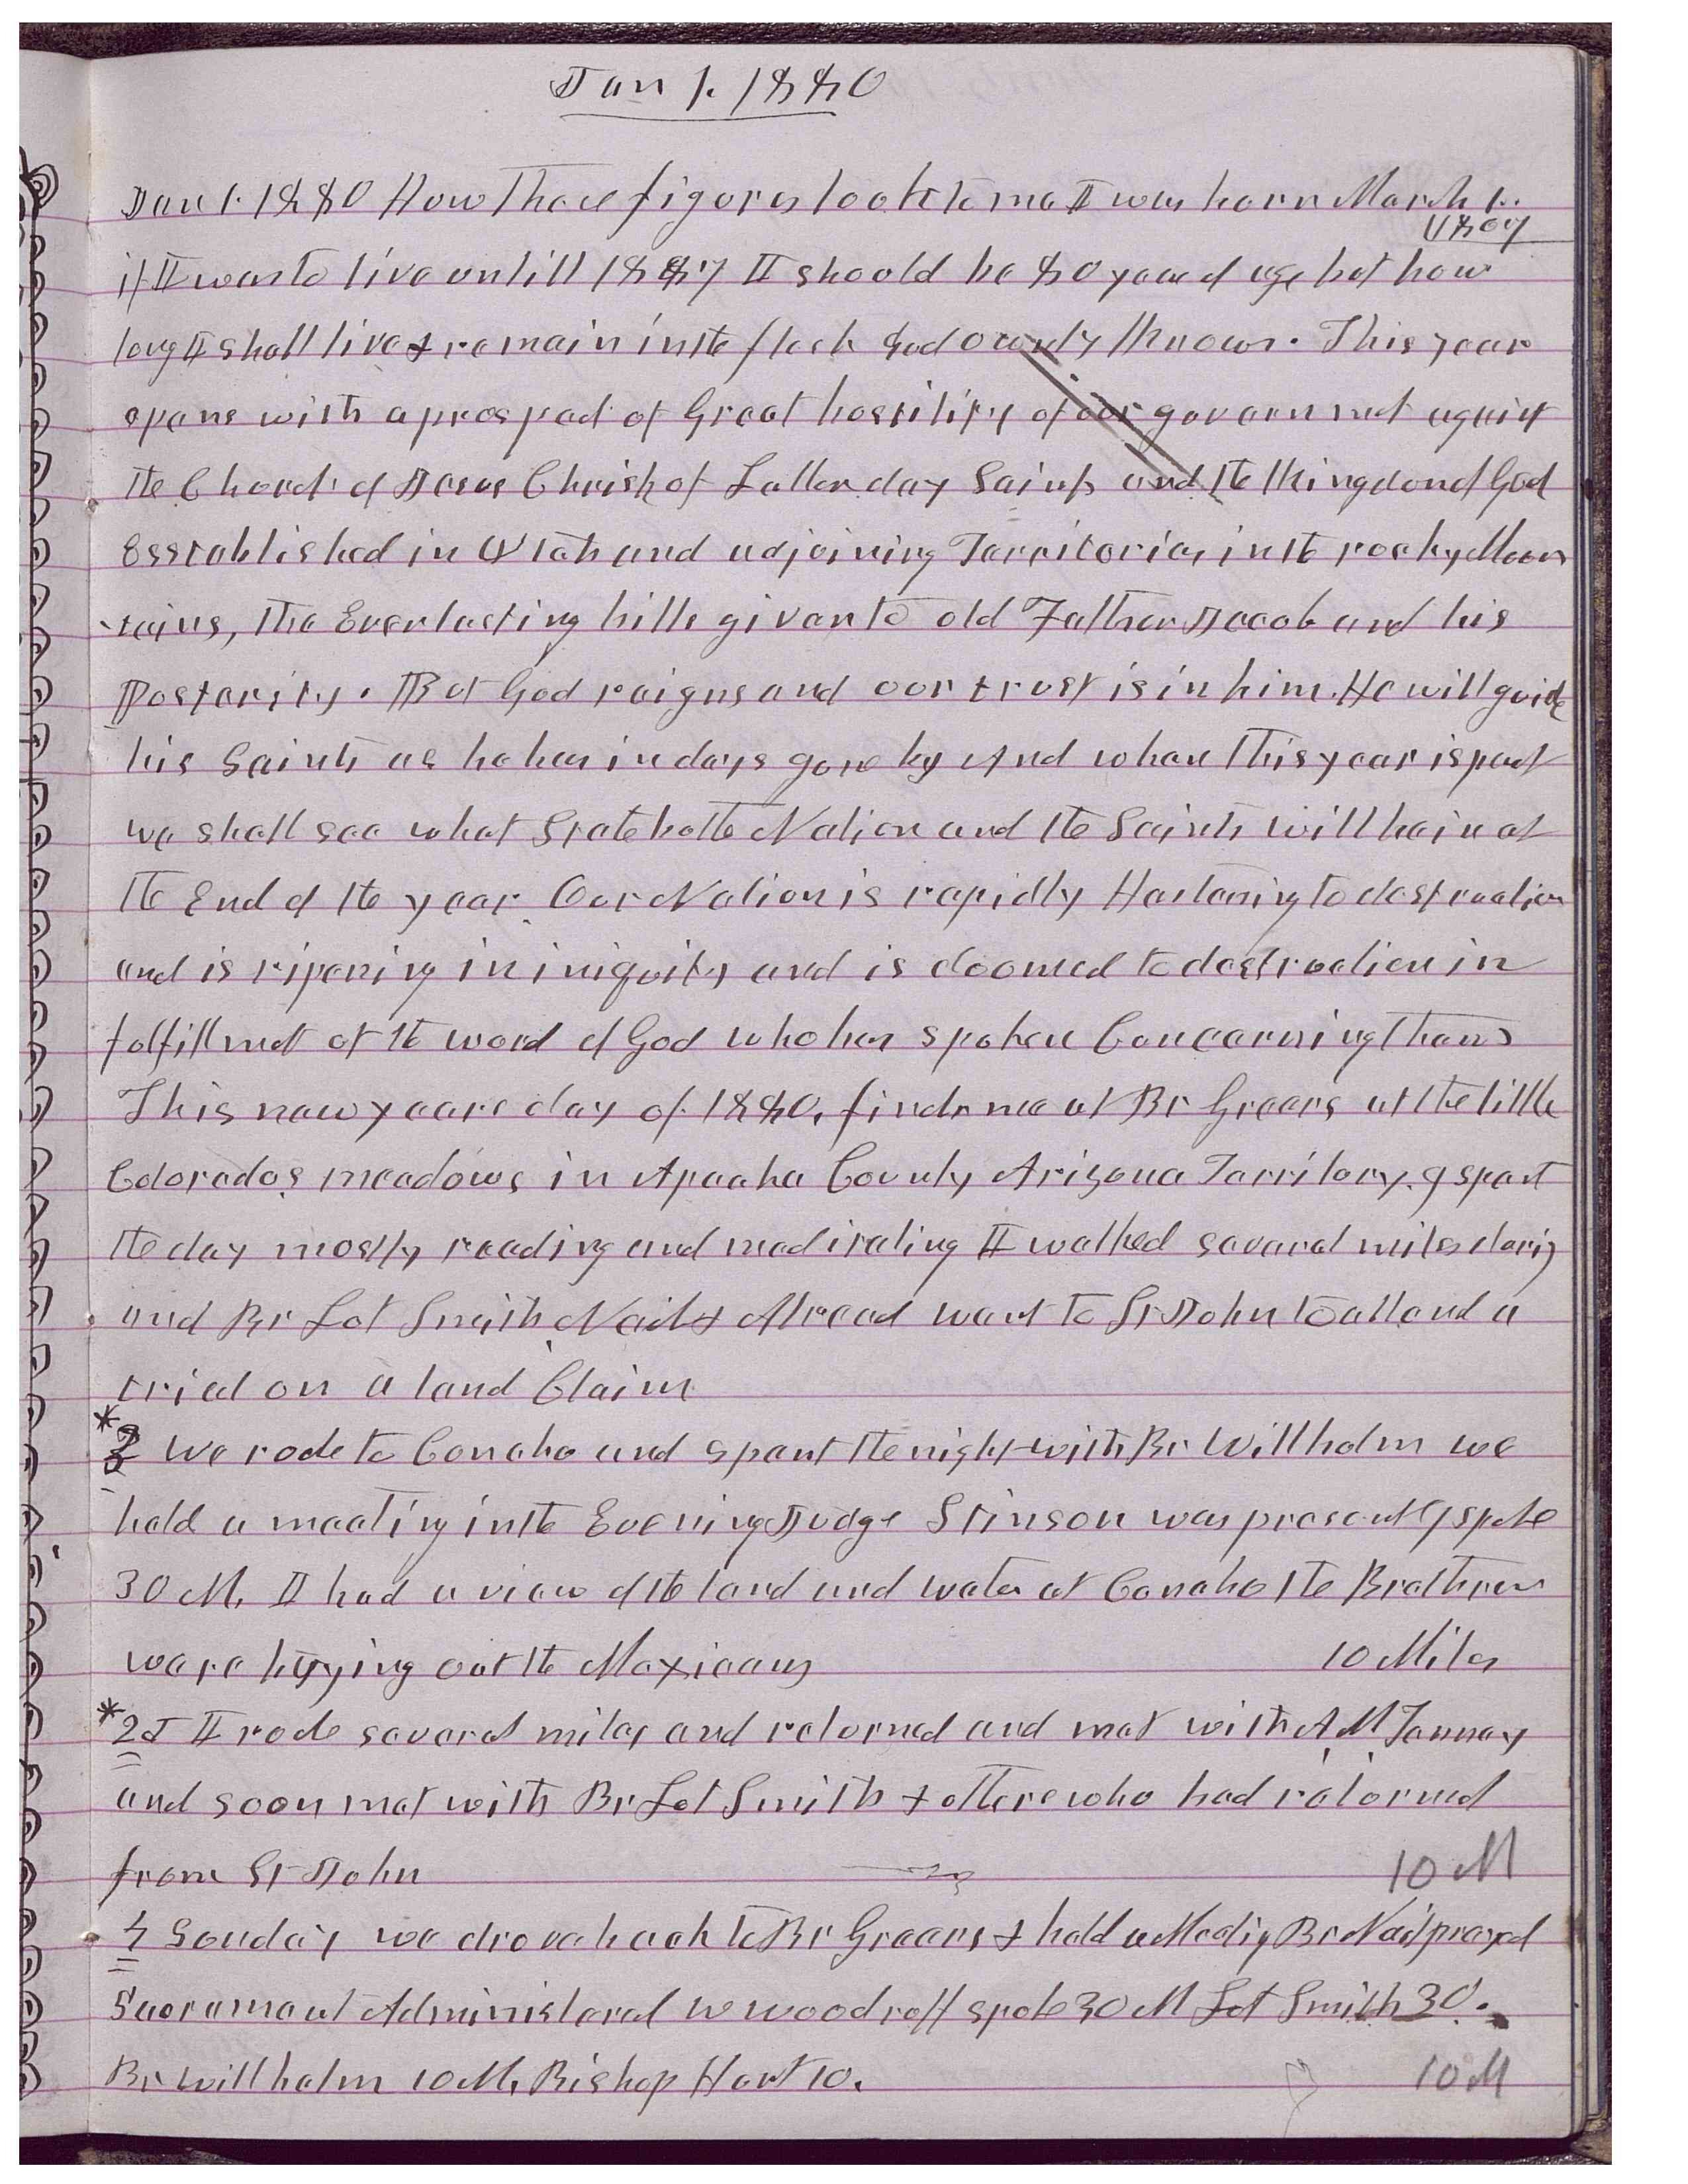 Jan 1. 1880
Jan 1. 1880 How Those figures look to me I was born March 1..
1807
if I was to live untill 1887 I should be 80 years of age but how
long I shall live & remain in the flesh God ownly knows. This year
opens with a prospect of Great hostility of our government against
the Church of Jesus Christ of Latter day Saints and the Kingdom of God
Esstablished in Utah and adjoining Territories in the rocky Moun
tains, the Everlasting hills given to old Father Jacob and his
Posterity. But God reigns and our trust is in him. He will guide
his Saints as he has in days gone by And when this year is past
we shall see what State both the Nation and the Saints will be in at
the End of the year. Our Nation is rapidly Hastening to destruction
and is ripening in iniquity and is doomed to destruction in
fulfillmet of the word of God who has spoken Concerning them
This new years day of 1880, finds me at Br Greers at the little
Colorados meadows in Apache County Arizona Territory. I spent
the day mostly reading and meditating I walked several miles during
and Br Lot Smith Nail & Mread went to St John to attend a
trial on a land Claim
* 2 We rode to Concho and spent the night with Br Willhelm we
held a meeting in the Evening Judge Stinson was present I spoke
30 M. I had a view of the land and water at Concho the Brethren
were buying out the Mexicans 10 Miles
* 2d I rode several miles and returned and met with A M Tenney
and soon met with Br Lot Smith & others who had returned
from St John 10 M
4 Sunday we drove back to Br Greers & held a Meetig Br Nail prayed
Sacrament Administered W Woodruff spoke 30 M Lot Smith 30.
Br Willhelm 10 M, Bishop Hart 10. 10 M